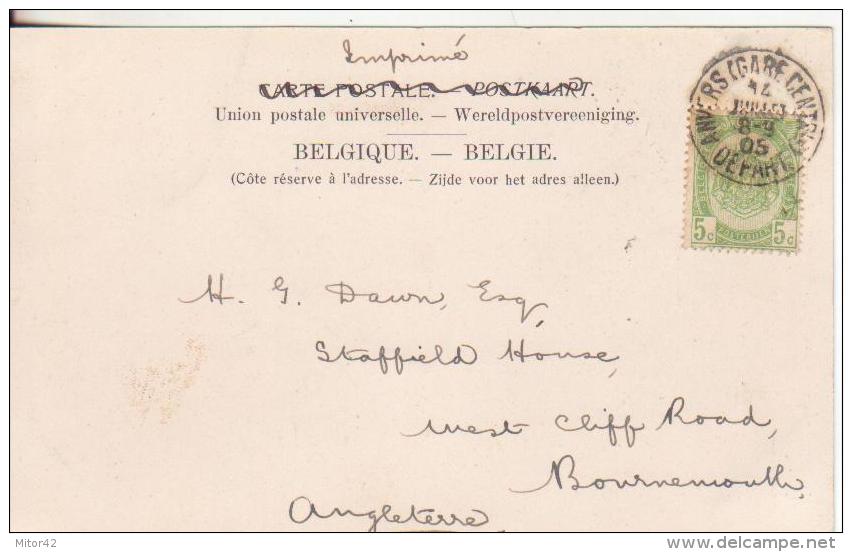 Imprimé
CARTE POSTALE. — POSTKAART.
Union postale universelle. — Wereldpostvereeniging.
BELGIQUE. — BELGIE.
(Côte réserve à l'adresse. — Zijde voor het adres alleen.)
ANVERS (GARE CENTRALE)
14
JUILLET
8-9
05
DÉPART
5c 5c
H. G. Dawn, Esq,
Staffield House,
West Cliff Road,
Bournemouth,
Angleterre
Mitor42
www.delcampe.net